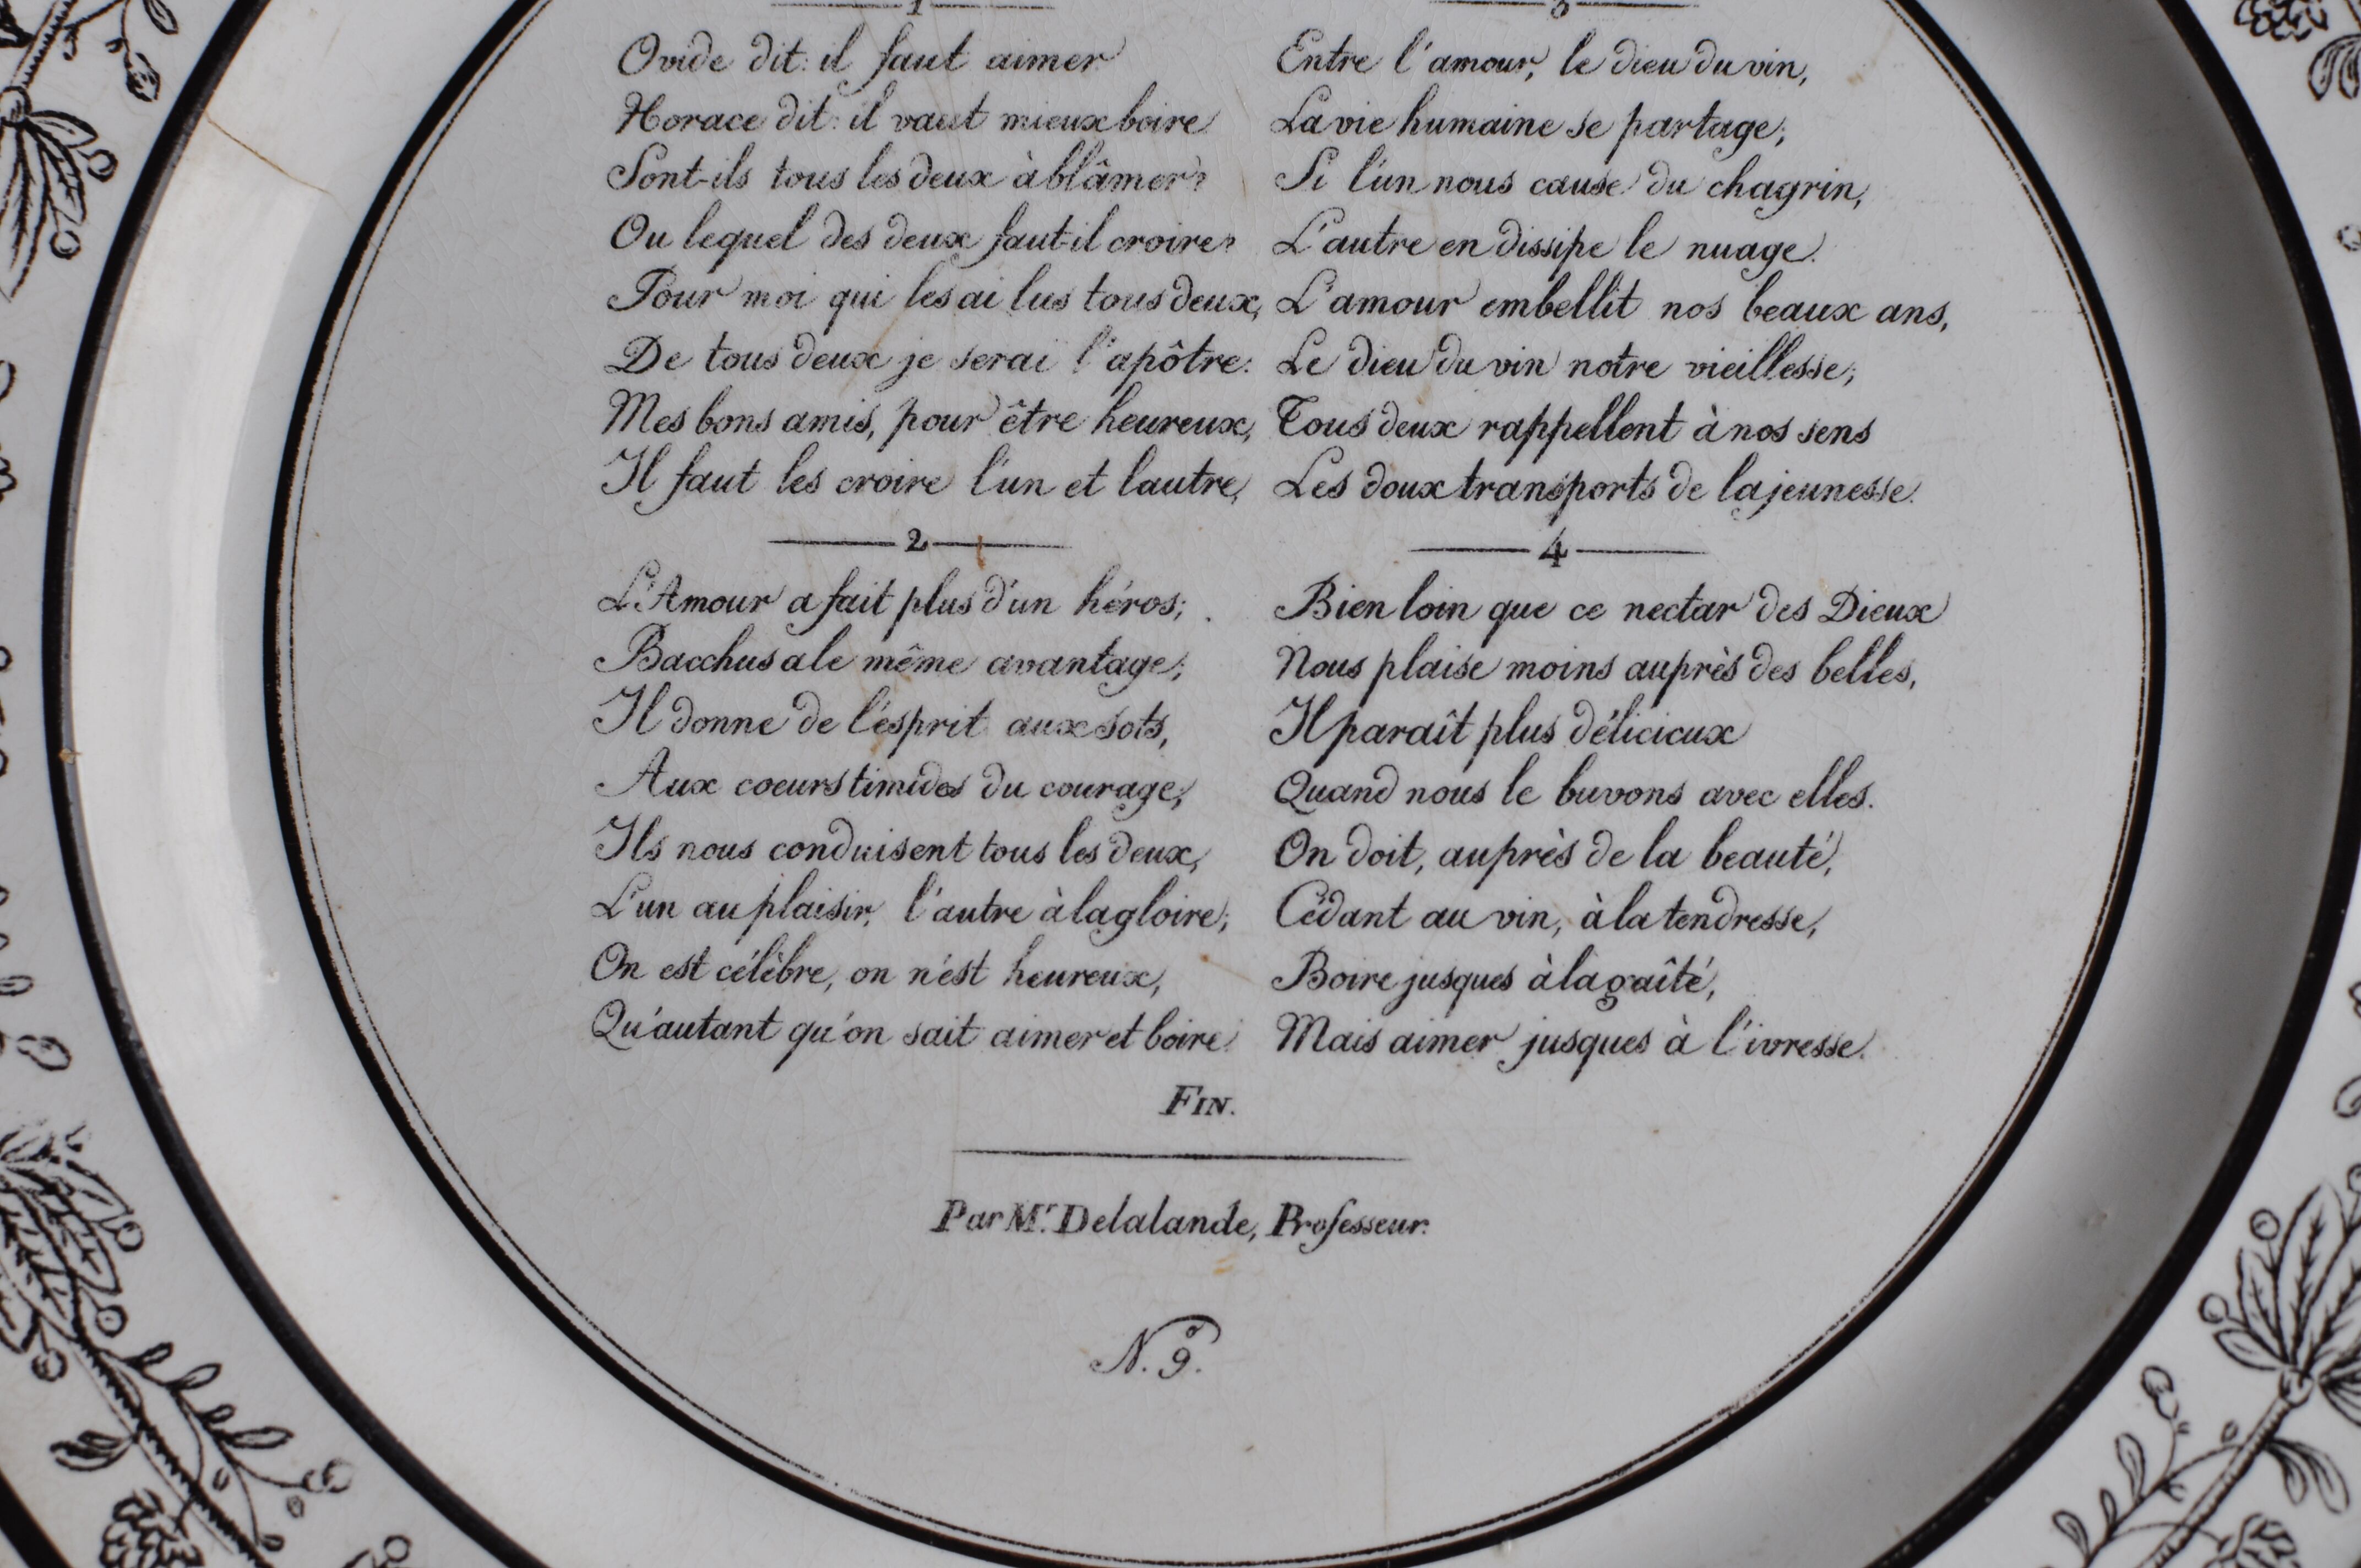 1
Ovide dit: il faut aimer
Horace dit: il vaut mieux boire
Sont-ils tous les deux à blâmer?
Ou lequel des deux faut-il croire?
Pour moi qui les ai lus tous deux,
De tous deux je serai l'apôtre:
Mes bons amis, pour être heureux,
Il faut les croire l'un et lautre,
2
L'Amour a fait plus d'un héros;
Bacchus a le même avantage;
Il donne de l'ésprit aux sots,
Aux coeurs timides du courage;
Ils nous conduisent tous les deux,
L'un au plaisir, l'autre à la gloire;
On est célèbre, on n'ést heureux,
Qu'autant qu'on sait aimer et boire.
3
Entre l'amour, le dieu du vin,
La vie humaine se partage;
Si l'un nous cause du chagrin,
L'autre en dissipe le nuage.
L'amour embellit nos beaux ans,
Le dieu du vin notre vieillesse;
Tous deux rappellent à nos sens
Les doux transports de la jeunesse.
4
Bien loin que ce nectar des Dieux
Nous plaise moins auprès des belles,
Il paraît plus délicieux
Quand nous le buvons avec elles.
On doit, auprès de la beauté,
Cédant au vin, à la tendresse,
Boire jusques à la gaîté,
Mais aimer jusques à l'ivresse.
FIN.
Par Mr. Delalande, Professeur.
No. 9.